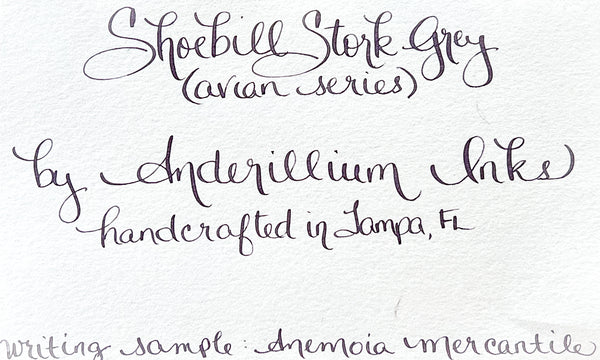 Shoebill Stork Grey
(avian series)
by Anderillium Inks
handcrafted in Tampa, FL
writing sample: Anemoia Mercantile